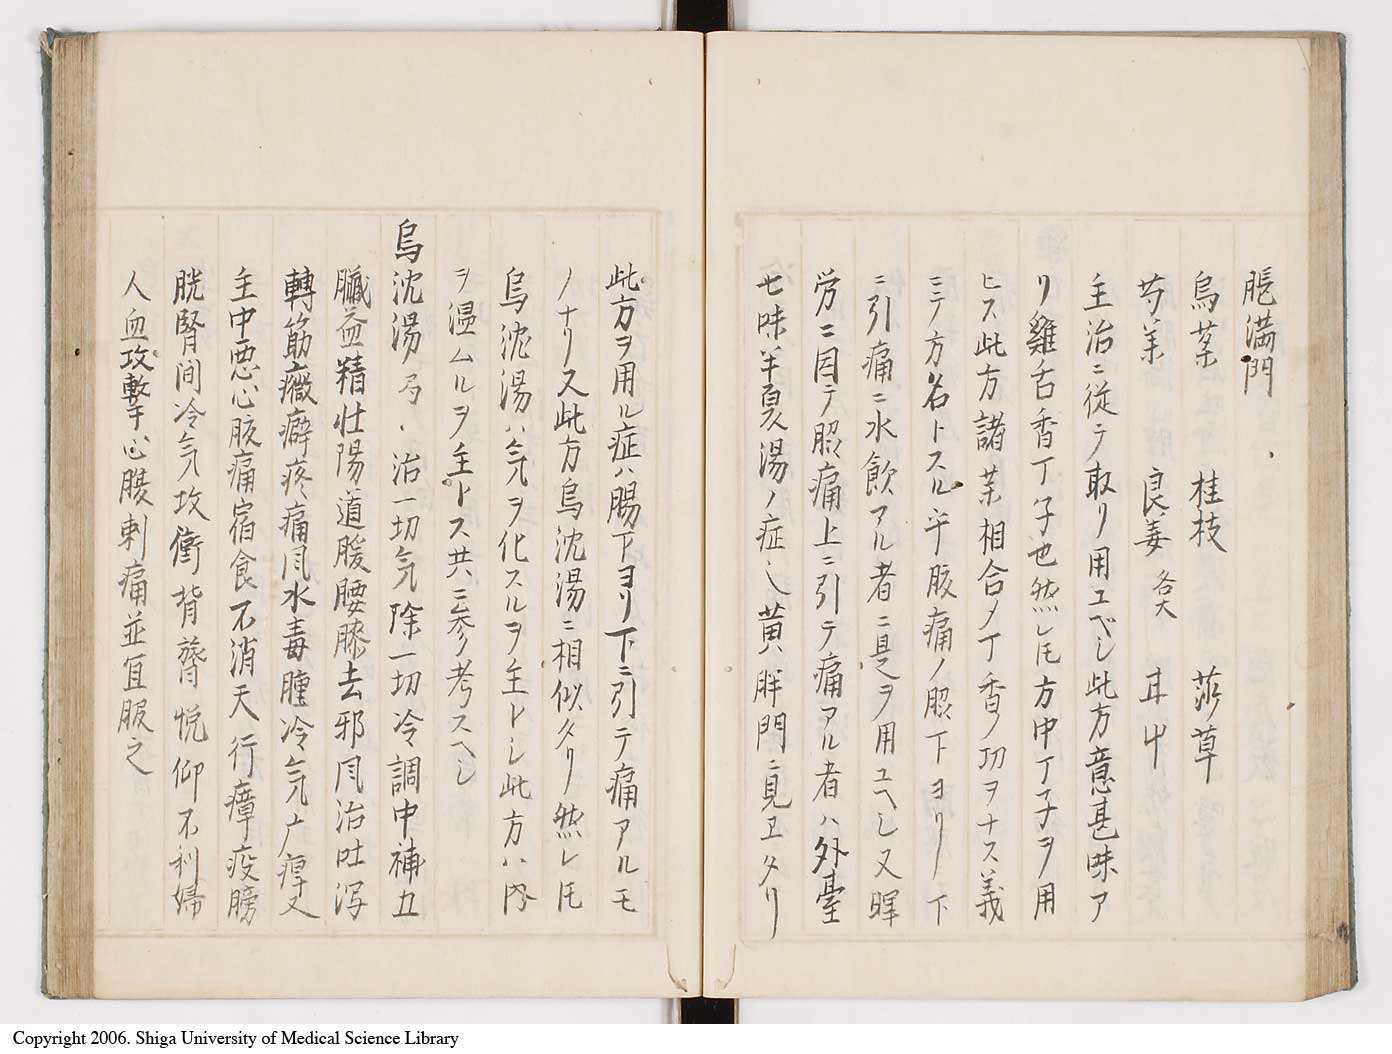 脹満門
烏薬 桂枝 莎草
芍薬 良姜 各大 甘艸
主治ニ従テ取リ用ユベシ此方意甚味ア
リ雞舌香丁子也然レ𪜈方中丁子ヲ用
ヒス此方諸薬相合メ丁香ノ功ヲナス義
ニテ方名トスル乎腹痛ノ臍下ヨリ下
ニ引痛ニ水飲アル者ニ是ヲ用ユヘシ又暉
労ニ因テ臍痛上ニ引テ痛アル者ハ外臺
七味半夏湯ノ症也黄胖門ニ見ヱタリ
此方ヲ用ル症ハ腸下ヨリ下ニ引テ痛アルモ
ノナリ又此方烏沈湯ニ相似タリ然レ𪜈
烏沈湯ハ気ヲ化スルヲ主トシ此方ハ内
ヲ温ムルヲ主トス共ニ参考スヘシ
烏沈湯局、治一切気除一切冷調中補五
臓益精壮陽道暖腰膝去邪風治吐泻
轉筋癥癖疼痛風水毒腫冷気广痺又
主中悪心腹痛宿食不消天行瘴疫膀
胱腎间冷気攻衝背膂悦仰不利婦
人血攻撃心腹刺痛並宜服之
Copyright 2006. Shiga University of Medical Science Library